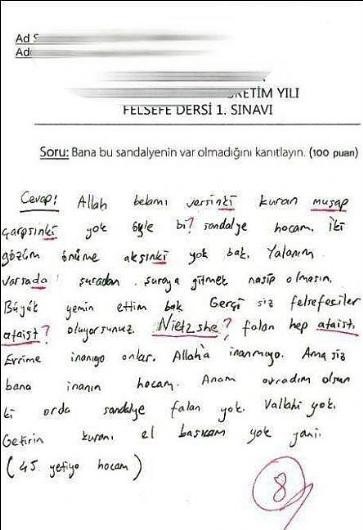 Ad S
Ad
RETİM YILI
FELSEFE DERSİ 1. SINAVI
Soru: Bana bu sandalyenin var olmadığını kanıtlayın. (100 puan)
Cevap: Allah belamı versinki kuran musap
çarpsınki yok öyle bi? sandalye hocam. İki
gözüm önüme aksınki yok bak. Yalanım
varsada şuradan şuraya gitmek nasip olmasın.
Büyük yemin ettim bak Gerçi siz felsefeciler
ataist? oluyorsunuz. Nietzshe? falan hep ataist.
Evrime inanıyo onlar. Allah'a inanmıyo. Ama siz
bana inanın hocam. Anam avradım olsun
ki orda sandalye falan yok. Vallahi yok.
Getirin kuranı el basıcam yok yani.
(45 yetiyo hocam)
8